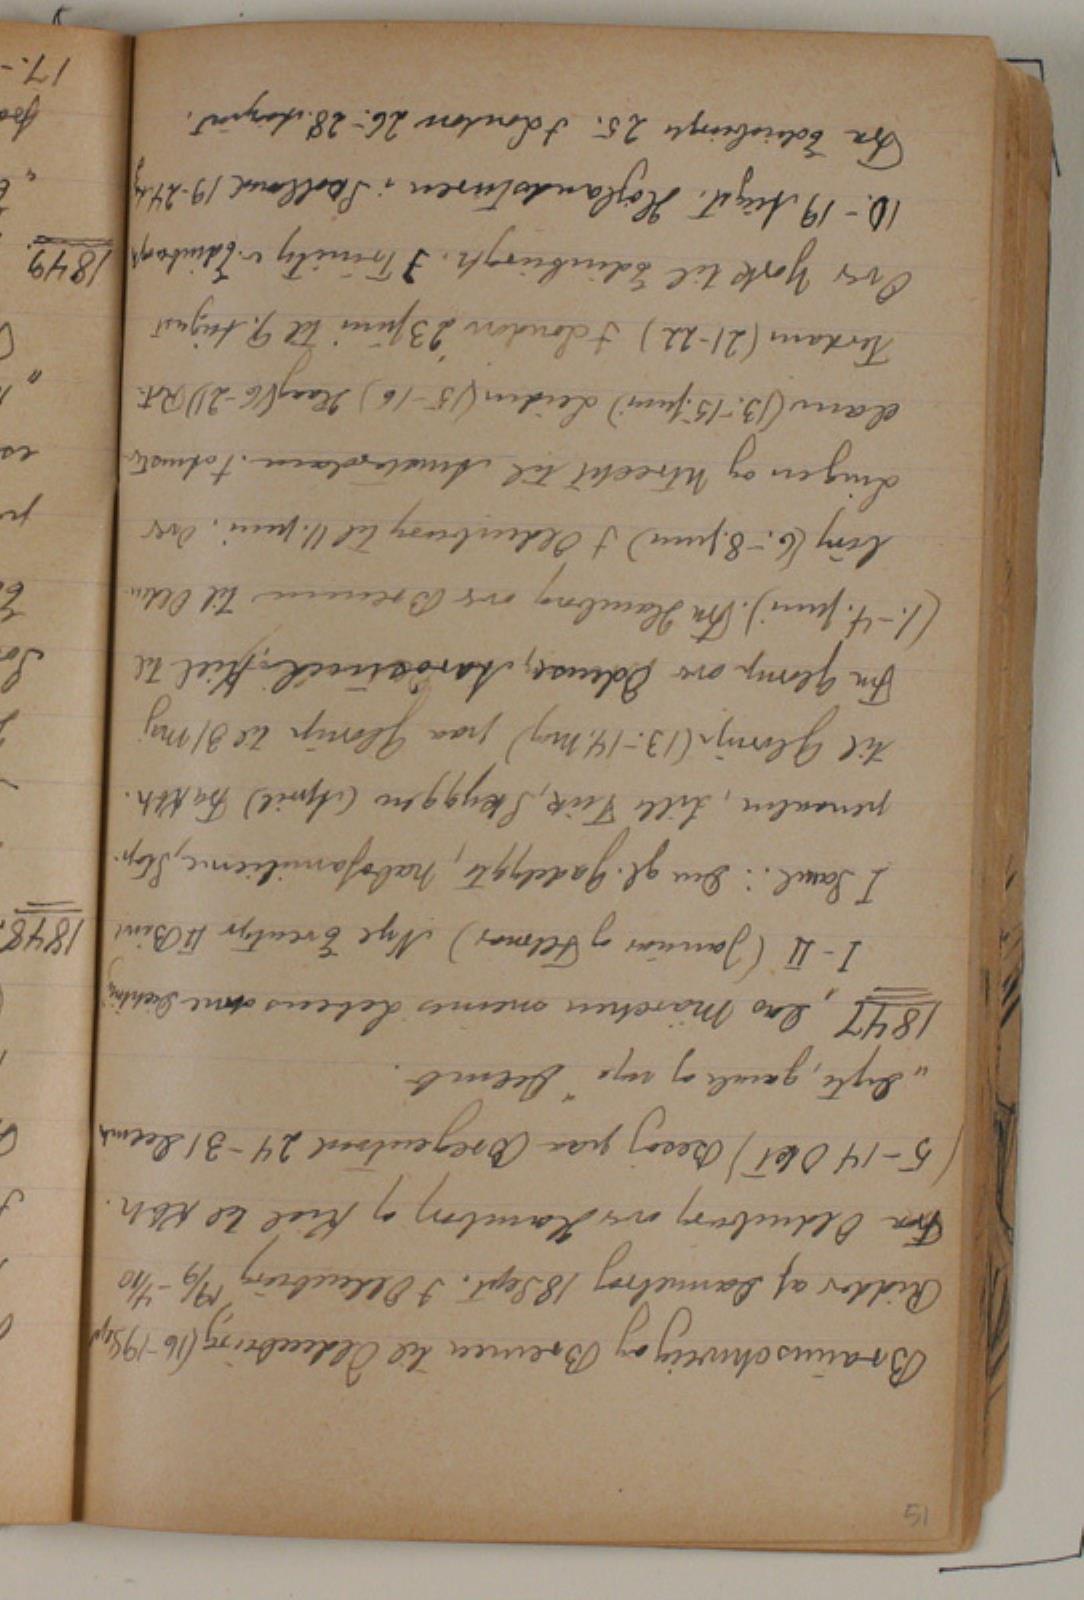 15
Braunschweig og Bremen til Oldenburg (16-19 Sept
Ridder af Dannebrog 18 Sept. I Oldenburg 19/9 - 4/10
Fra Oldenburg over Hamburg og Kiel til Kbh.
(5-14 Okt) Besøg paa Bregentved 24-31 Decmb
"Digte, gamle og nye" Decmb.
1847 "Das Märchen meines Lebens ohne Dichtung"
I-II (Januar og Februar) Nye Eventyr II Bind
I Saml.: Den gl. Gadelygte, Nabofamilierne, Stop-
penaalen, Lille Tuk, Skyggen (April) Fra Kbh.
til Glorup (13.-14. Maj) paa Glorup til 31 Maj
Fra Glorup over Odense, Aarøsund, Kiel til
(1.-4. Juni). Fra Hamburg over Bremen til Olden-
burg (6.-8. Juni) I Oldenburg til 11. Juni. Over
Lingen og Utrecht til Amsterdam. I Amster-
dam (13.-15. Juni) Leiden (15-16) Haag (16-21) Rot-
terdam (21-22) I London 23 Juni til 9. August
Over York til Edinburgh. I Trinity v. Edinburgh
10.-19 August. Højlandsturen i Skotland 19-24 Aug
Fra Edinburgh 25. I London 26.-28. August.
1848.
1849.
17.-